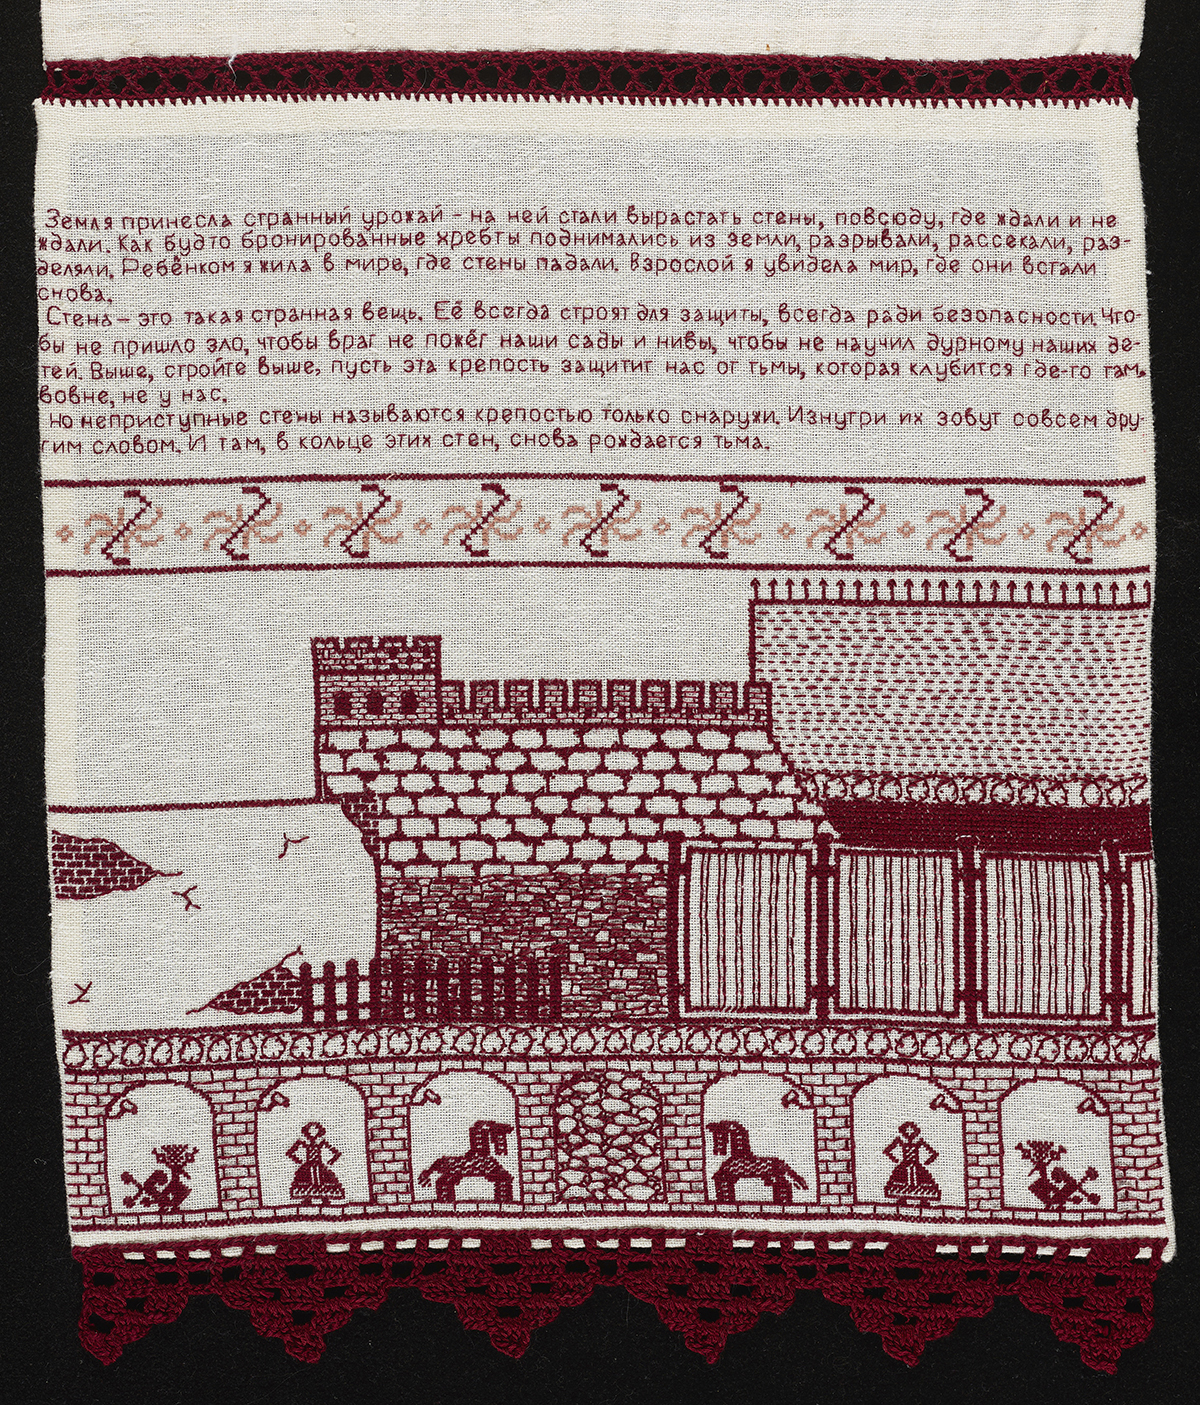 Земля принесла странный урожай – на ней стали вырастать стены, повсюду, где ждали и не
ждали. Как будто бронированные хребты поднимались из земли, разрывали, рассекали, раз-
деляли. Ребёнком я жила в мире, где стены падали. Взрослой я увидела мир, где они встали
снова.
Стена – это такая странная вещь. Её всегда строят для защиты, всегда ради безопасности. Что-
бы не пришло зло, чтобы враг не пожёг наши сады и нивы, чтобы не научил дурному наших де-
тей. Выше, стройте выше, пусть эта крепость защитит нас от тьмы, которая клубится где-то там,
вовне, не у нас.
Но неприступные стены называются крепостью только снаружи. Изнутри их зовут совсем дру-
гим словом. И там, в кольце этих стен, снова рождается тьма.